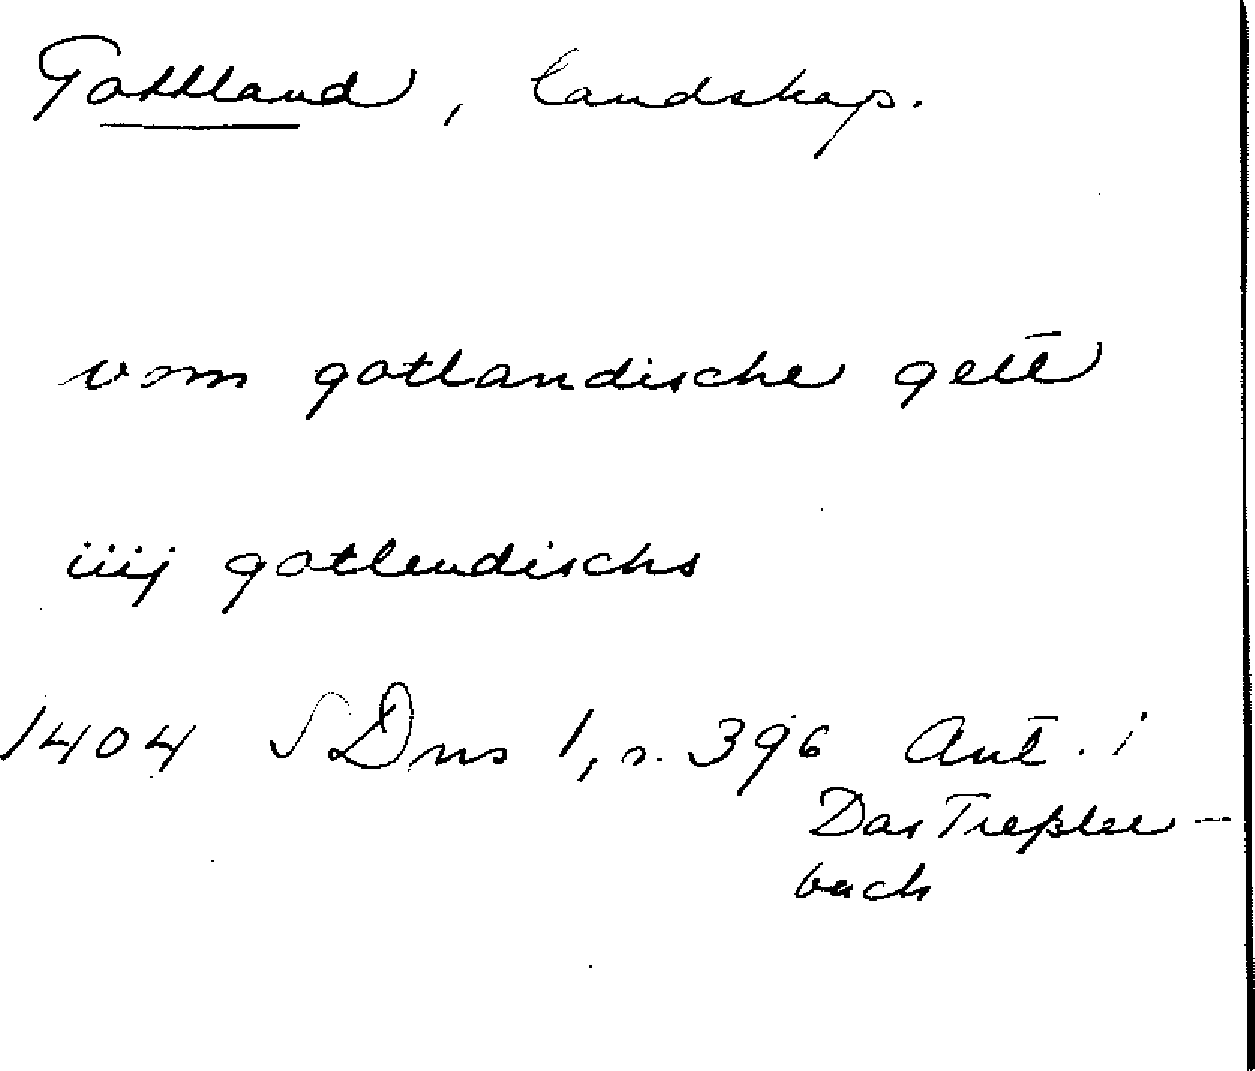 Gottland, landskap.
vom gotlandische gelē
iiij gotlendischs
1404 SDns 1, s. 396 Ant. i
Das Treßler-
buch